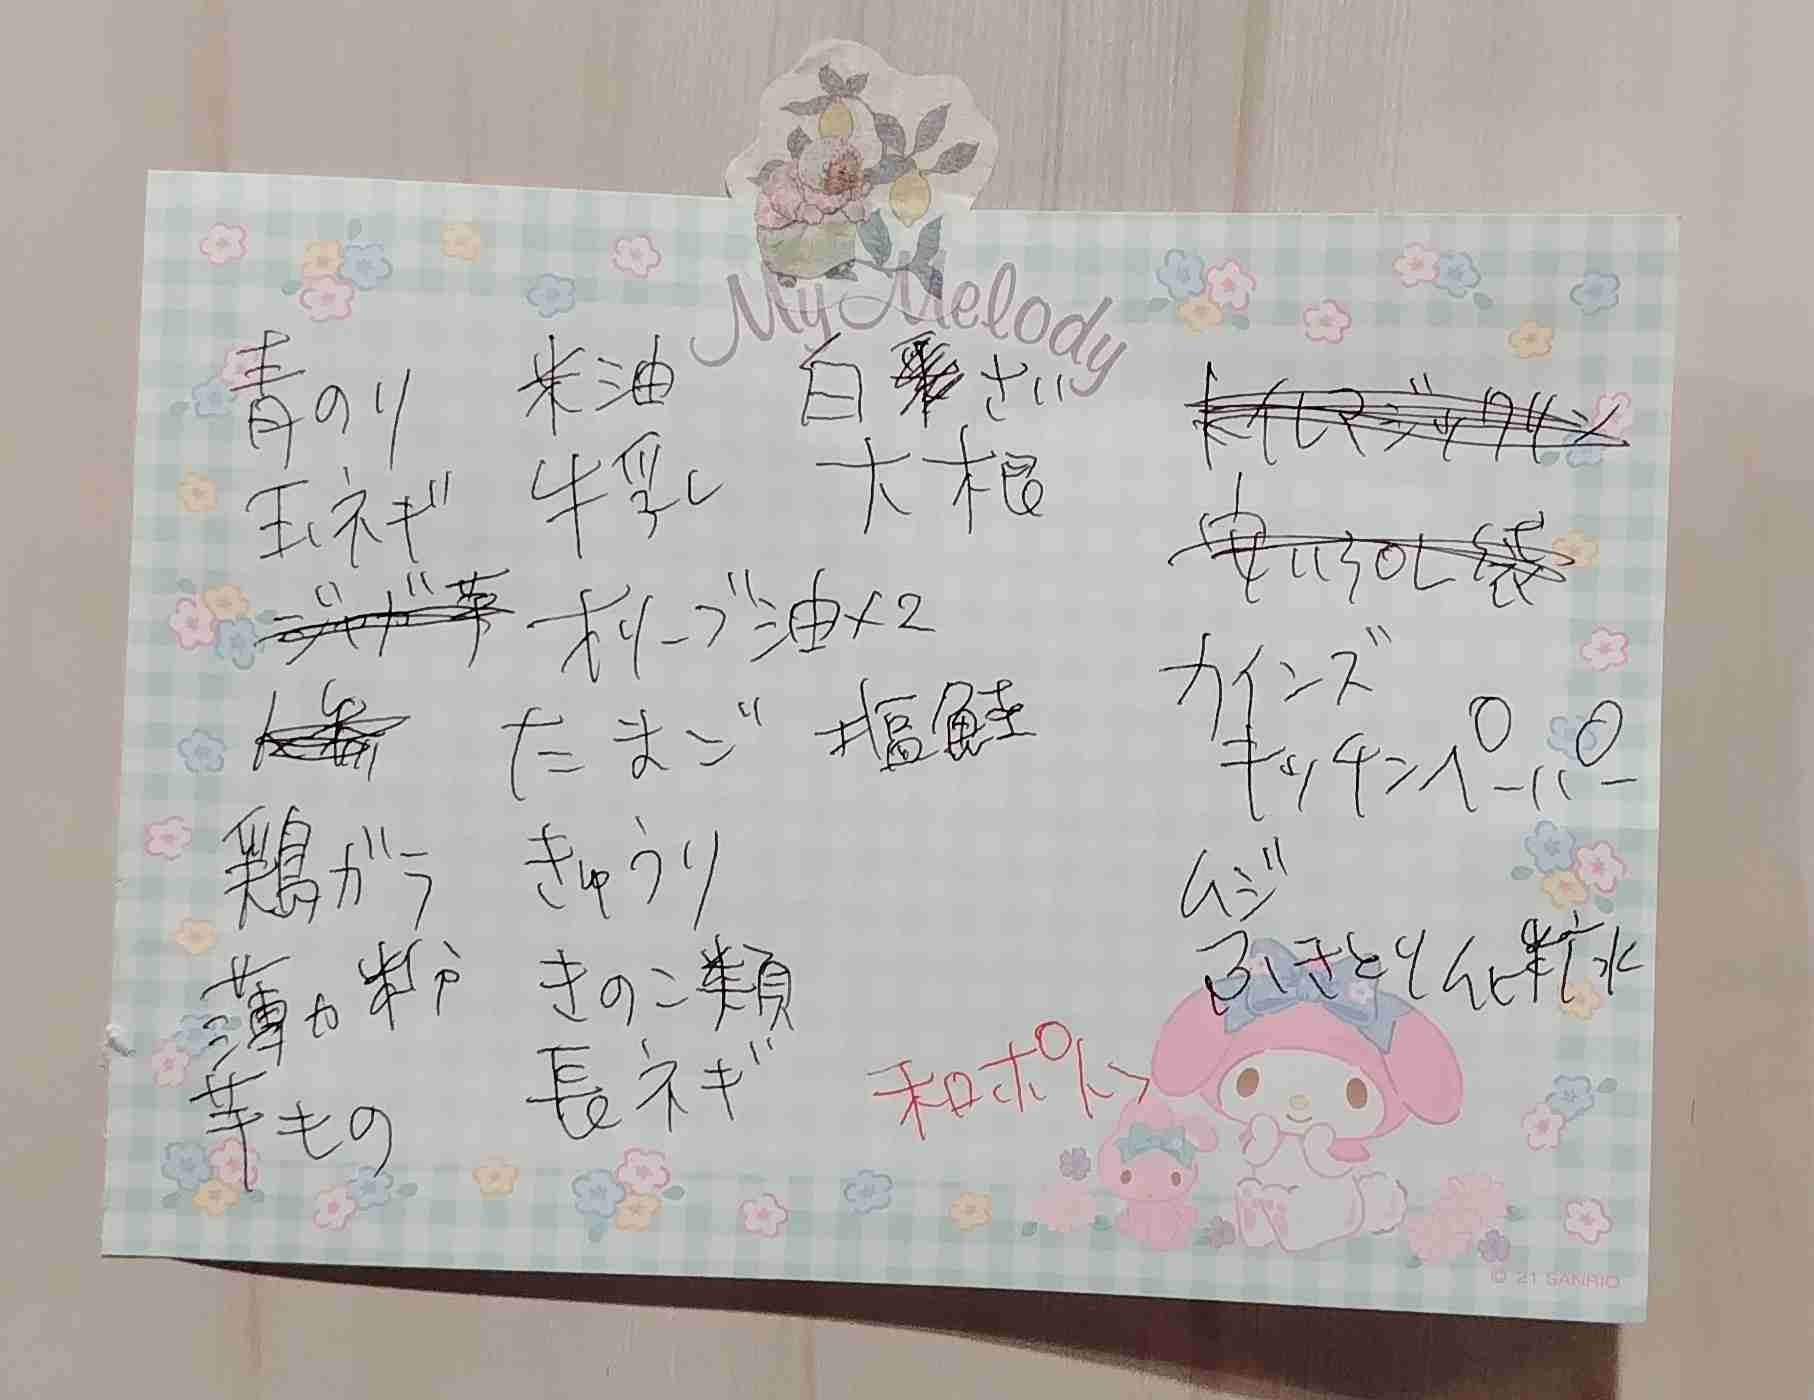 My Melody
青のり
玉ネギ
ジャガ芋
鶏ガラ
薄力粉
芋もの
米油
牛乳
オリーブ油×2
たまご
きゅうり
きのこ類
長ネギ
白菜さい
大根
塩鮭
トイレマジックリン
カインズ
キッチンペーパー
ムジ
ふきとり化粧水
和ポント
© '21 SANRIO